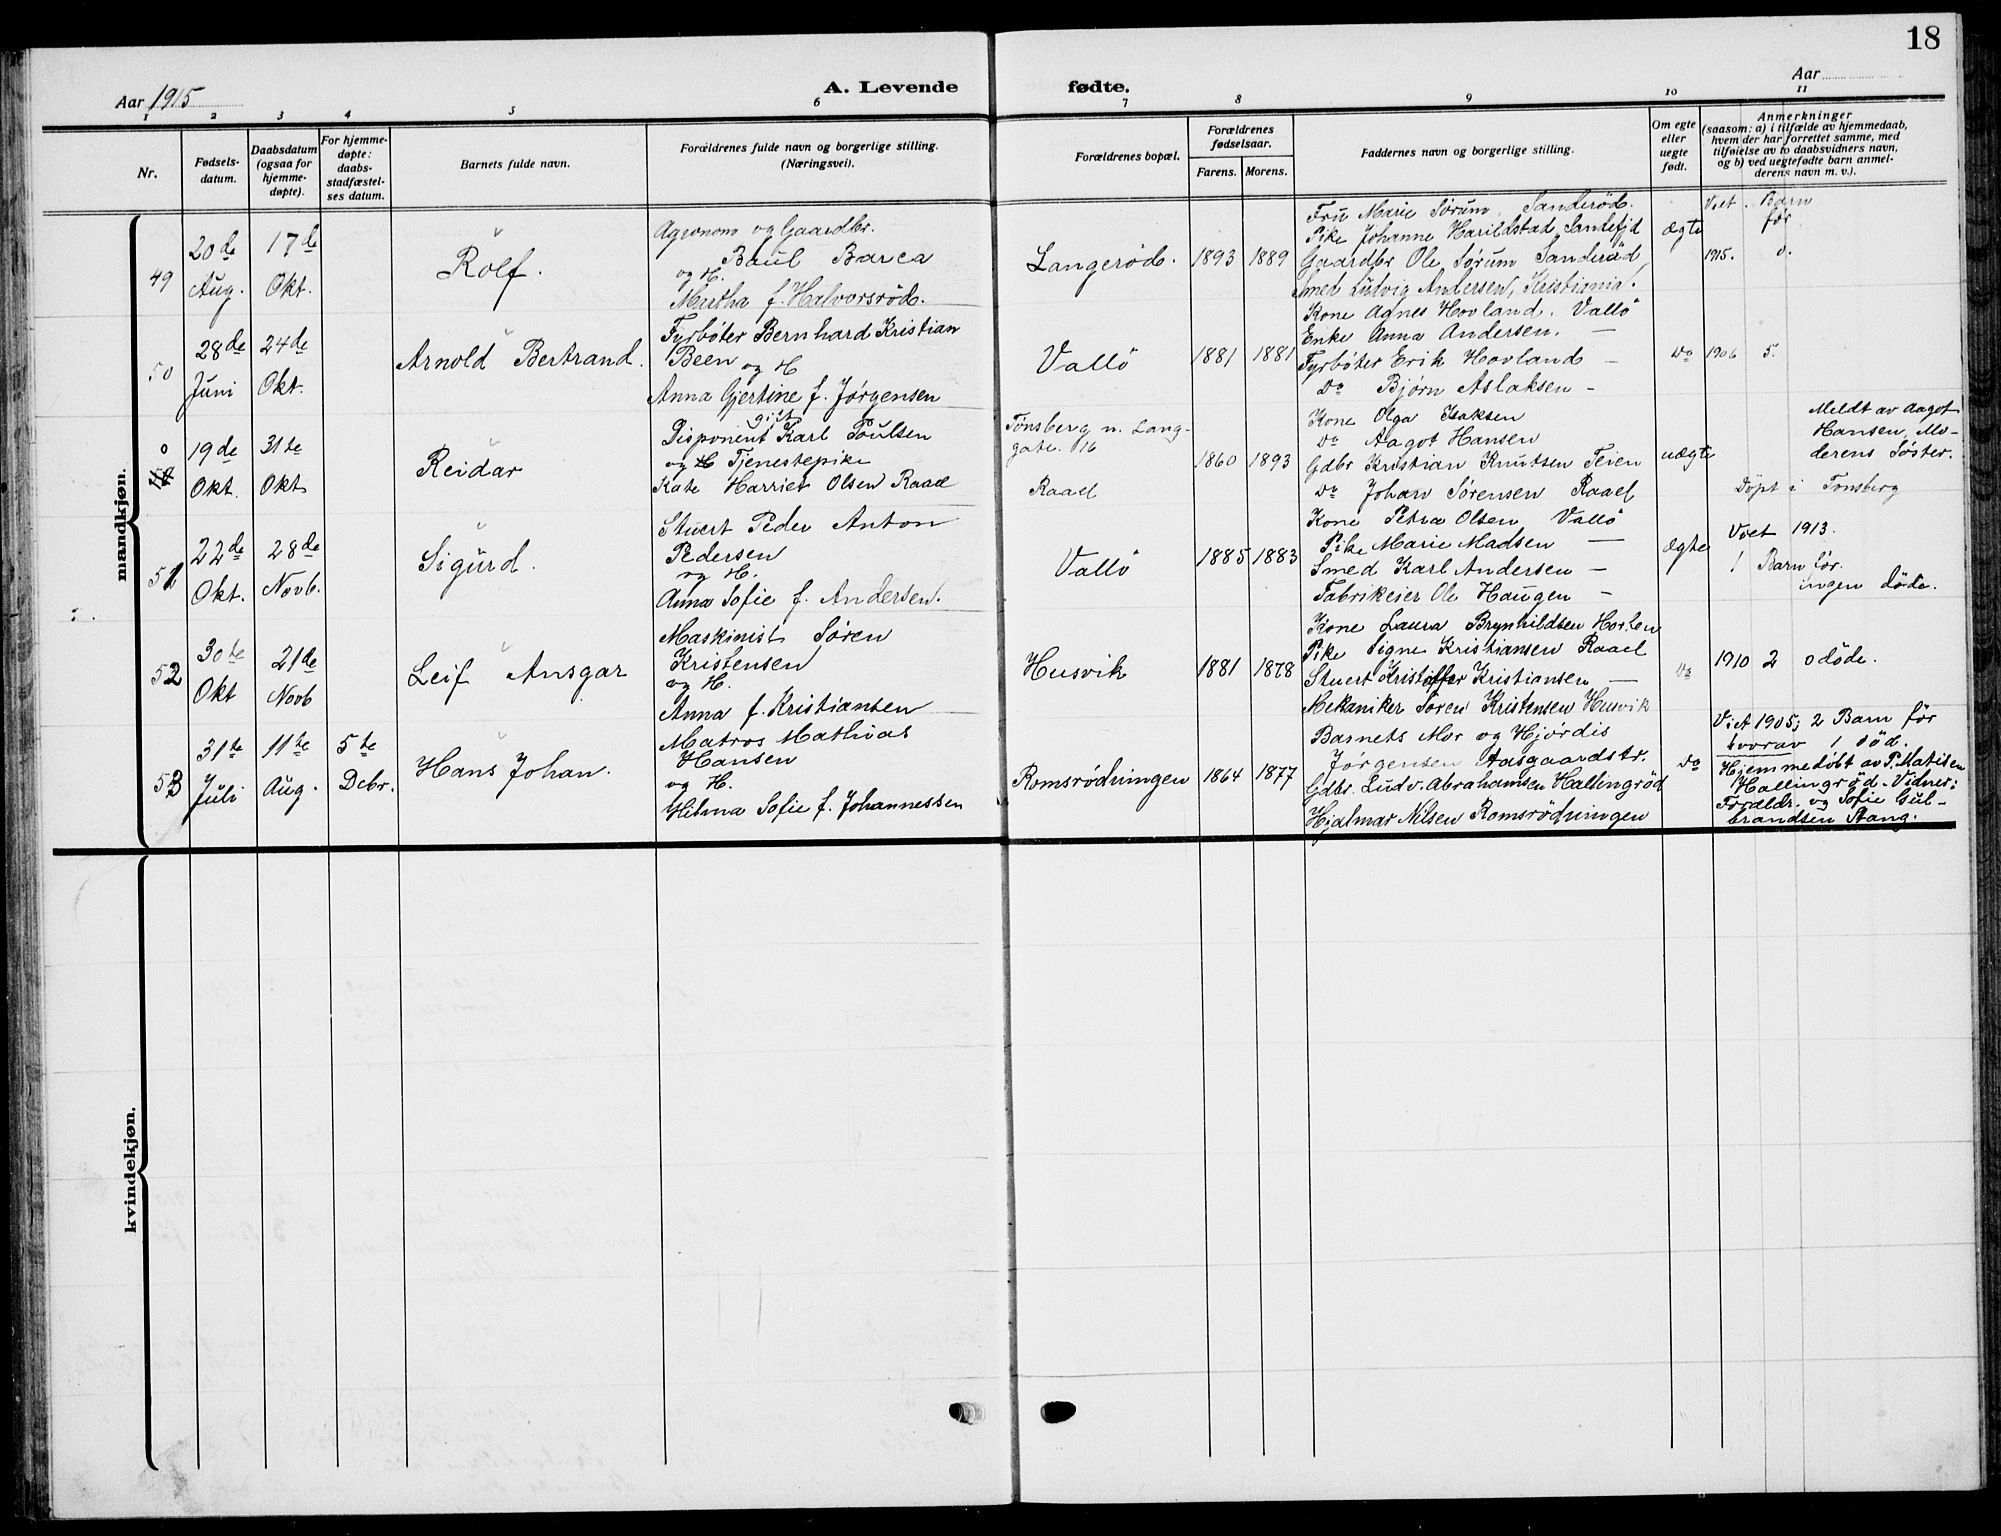 18
Aar 1915
A. Levende fødte.
Aar
1 2 3 4 5 6 7 8 9 10 11
Nr.
Fødsels-
datum.
Daabsdatum
(ogsaa for
hjemme-
døpte).
For hjemme-
døpte:
daabs-
stadfæstel-
ses datum.
Barnets fulde navn.
Forældrenes fulde navn og borgerlige stilling.
(Næringsvei).
Forældrenes bopæl.
Forældrenes
fødselsaar.
Farens. Morens.
Faddernes navn og borgerlige stilling.
Om egte
eller
uegte
født.
Anmerkninger
(saasom: a) i tilfælde av hjemmedaab,
hvem der har forrettet samme, med
tilføielse av to daabsvidners navn,
og b) ved uegtefødte barn anmel-
derens navn m. v.).
mandkjøn.
49
20de
Aug.
17de
Okt.
Rolf.
Agronom og Gaardbr.
Paul Barca
og H.
Martha f. Halvorsrød.
Langerød.
1893
1889
Fru Marie Sørum, Sanderød.
Pike Johanne Harildstad Sandefjd
Gaardbr Ole Sørum Sanderød,
Smed Ludvig Andersen, Kristiania.
Ægte
Viet. Barn
før
1915. 0.
50
28de
Juni
24de
Okt.
Arnold Bertrand.
Fyrbøter Bernhard Kristian
Been
og H
Anna Gjertine f. Jørgensen
Vallö
1881
1881
Kone Agnes Hovland. Vallö
Enke Anna Andersen. —
Fyrbøter Erik Hovland —
Do Bjørn Aslaksen —
Do
1906 5.
0
19de
Okt.
31te
Okt
Reidar
gift
Disponent Karl Poulsen
og H Tjenestepike
Kate Harriet Olsen Raael
Tønsberg n. Lang-
gate. 16
Raael
1860
1893
Kone Olga Isaksen
Do Aagot Hansen
Gdbr Kristian Knutsen Feien
Do Johan Sørensen Raael
uægte
Meldt av Aagot
Hansen, Mo-
derens Søster.
Døpt i Tønsberg
51
22de
Okt.
28de
Novb.
Sigurd.
Stuert Peder Anton
Pedersen
og H.
Anna Sofie f. Andersen.
Vallö
1885
1883
Kone Petra Olsen Vallö
Pike Marie Madsen —
Smed Karl Andersen —
Fabrikeier Ole Haugen —
Ægte
Viet 1913.
1 Barn før.
ingen døde.
52
30te
Okt
21de
Novb
Leif Ansgar
Maskinist Søren
Kristensen
og H.
Anna f. Kristiansen
Husvik
1881
1878
Kone Laura Brynhildsen Horten
Pike Signe Kristiansen Raael
Stuert Kristoffer Kristiansen —
Mekaniker Søren Kristensen Husvik
Do
1910 2 0 døde.
53
31te
Juli
11te
Aug.
5te
Debr.
Hans Johan.
Matros Mathias
Hansen
og H.
Hilma Sofie f. Johannessen
Romsrødningen
1864
1877
Barnets Mor og Hjørdis
Jørgensen Aasgaardstr.
Gdbr. Ludv. Abrahamsen Hallingrød
Hjalmar Nilsen Romsrødningen
Do
Viet 1905; 2 Barn før
hvorav 1 død.
Hjemmedøbt av P. Matisen
Hallingrød. Vidner:
Forældr. og Sofie Gul-
brandsen Stang.
kvindekjøn.